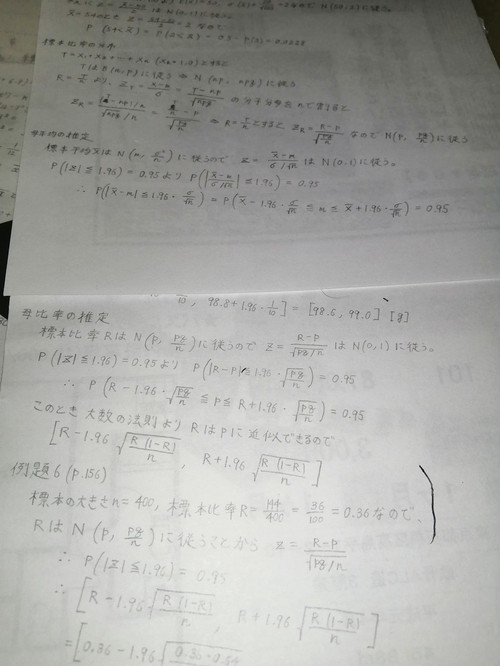 X=540のとき Z=
P(54≦X̄) = P(2≦Z) = 0.5 - P(2) = 0.0228
標本比率の分布
T = X₁ + X₂ + … + Xₙ (Xₖ=1,0)とすると
TはB(n,p)に従う ⇒ N(np, npq)に従う
Z_T = (X-m)/σ = (T-np)/√(npq) の分子分母をnで割ると
Z_R = ((T-np)/n)/(√(npq)/n) = (T/n - p)/√(pq/n) ⇒ R = T/n とすると Z_R = (R-p)/√(pq/n) なので N(p, pq/n)に従う
母平均の推定
標本平均X̄はN(m, σ²/n)に従うので Z = (X̄-m)/(σ/√n) はN(0,1)に従う。
P(|Z|≦1.96) = 0.95より P(|(X̄-m)/(σ/√n)| ≦ 1.96) = 0.95
∴ P(|X̄-m| ≦ 1.96・σ/√n) = P(X̄ - 1.96・σ/√n ≦ m ≦ X̄ + 1.96・σ/√n) = 0.95
1/10 , 98.8+1.96・1/10] = [98.6, 99.0] [g]
母比率の推定
標本比率RはN(p, pq/n)に従うので Z = (R-p)/√(pq/n) はN(0,1)に従う。
P(|Z|≦1.96) = 0.95より P(|R-p| ≦ 1.96・√(pq/n)) = 0.95
∴ P(R - 1.96・√(pq/n) ≦ p ≦ R + 1.96・√(pq/n)) = 0.95
このとき大数の法則よりRはpに近似できるので
[R - 1.96√(R(1-R)/n) , R + 1.96√(R(1-R)/n)]
例題6 (p.156)
標本の大きさn=400, 標本比率R = 144/400 = 36/100 = 0.36なので、
RはN(p, pq/n)に従うことから Z = (R-p)/√(pq/n)
∴ P(|Z|≦1.96) = 0.95
∴ [R - 1.96√(R(1-R)/n) , R + 1.96√(R(1-R)/n)]
= [0.36 - 1.96√(0.36・0.64